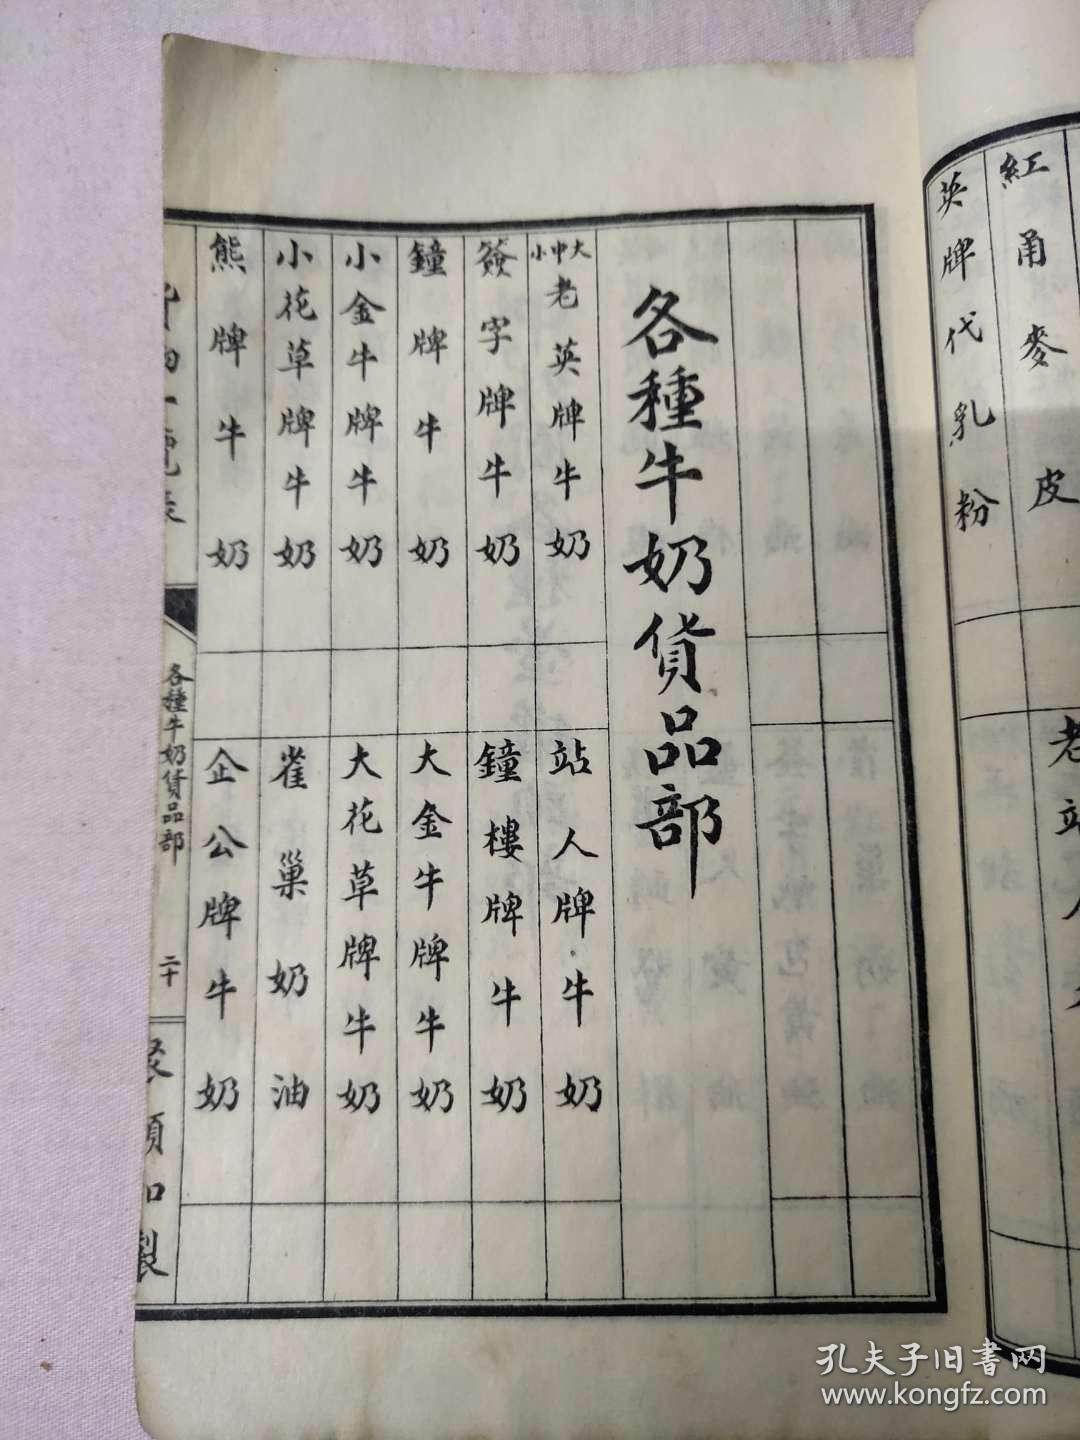 紅甬麥皮
英牌代乳粉
各種牛奶貨品部
大中小老英牌牛奶
站人牌牛奶
簽字牌牛奶
鐘樓牌牛奶
鐘牌牛奶
大金牛牌牛奶
小金牛牌牛奶
大花草牌牛奶
小花草牌牛奶
雀巢奶油
熊牌牛奶
企公牌牛奶
各種牛奶貨品部
二十
孔夫子旧書网
www.kongfz.com